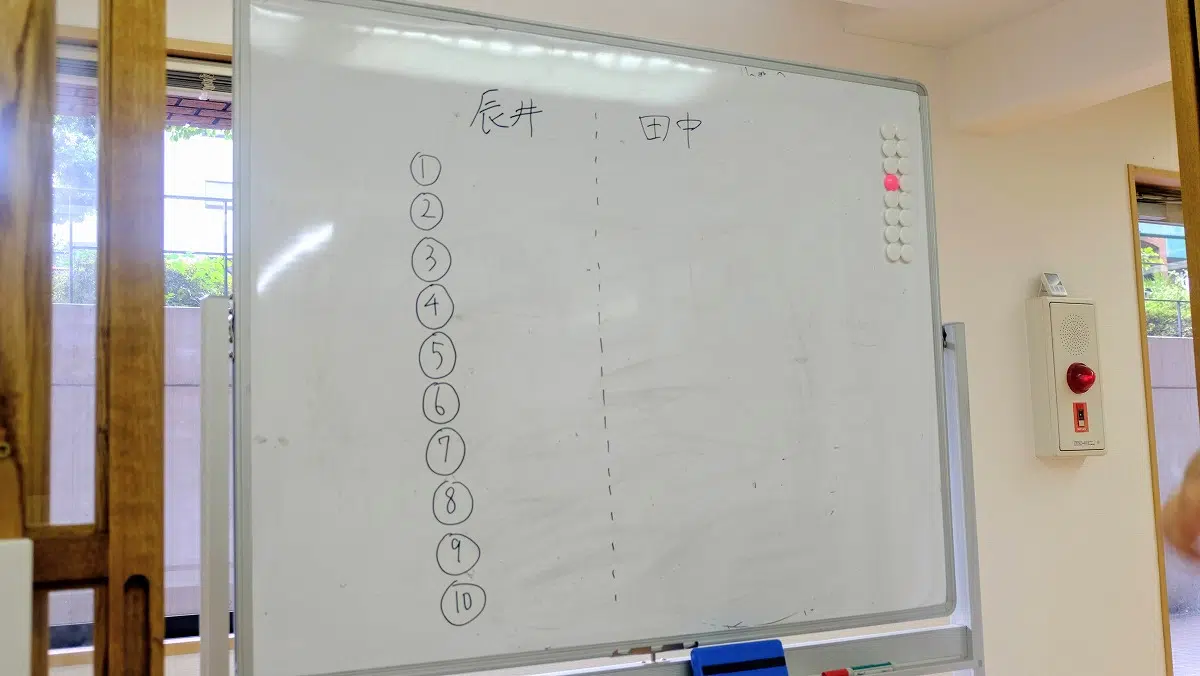 辰井 田中
①
②
③
④
⑤
⑥
⑦
⑧
⑨
⑩